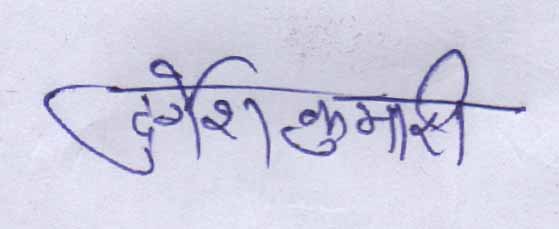 दुर्गेश कुमारी